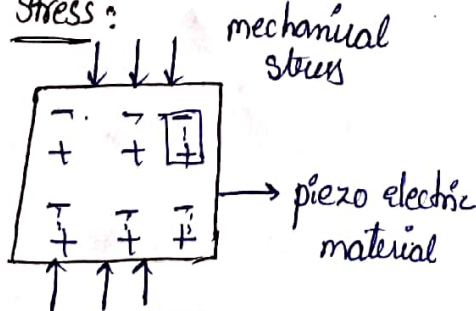 Stress:
mechanical
stress
- - -
+ + +
- - -
+ + +
piezo electric
material